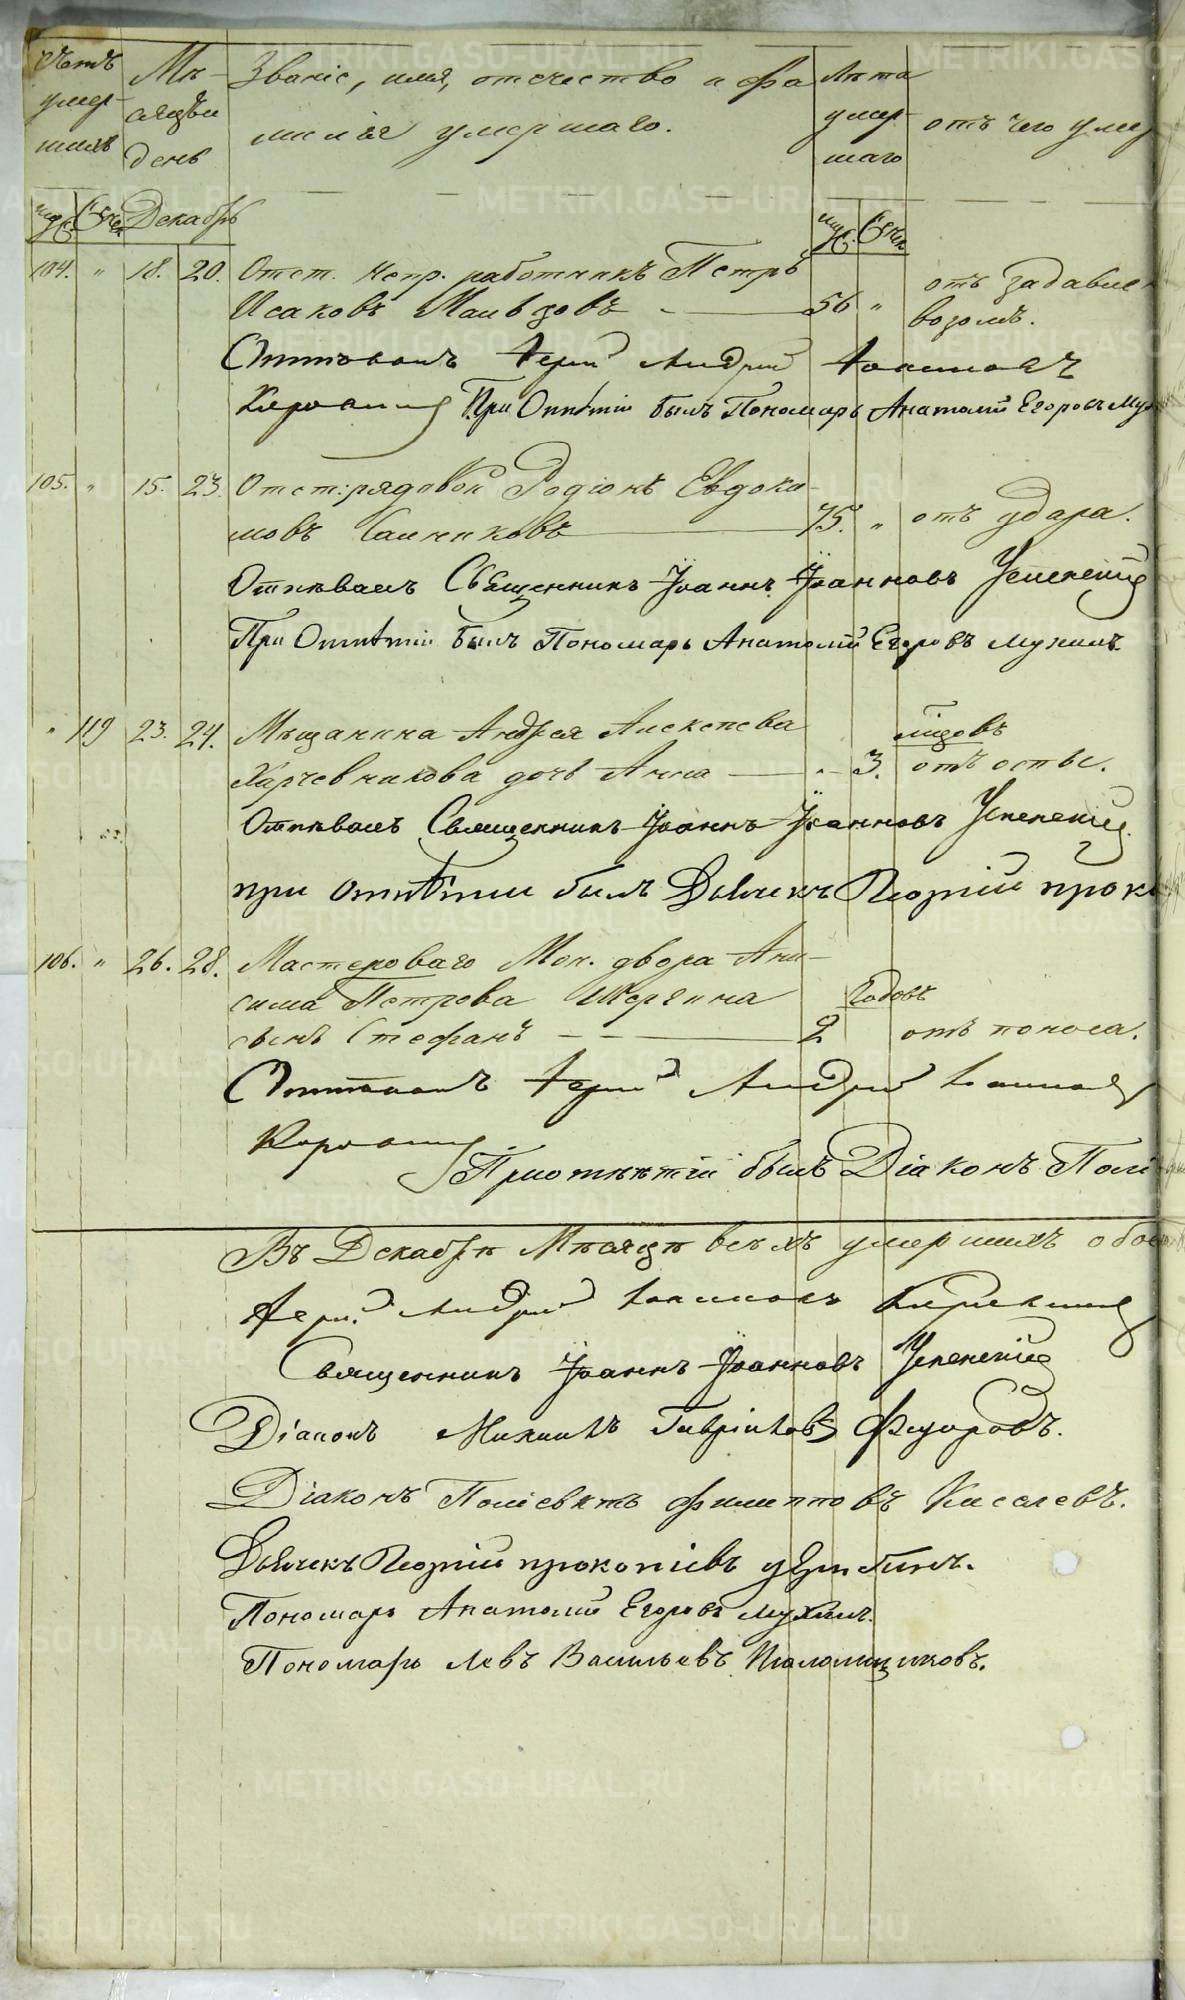 Счетъ умер- шихъ
Мѣ- сяцъ и день
Званіе, имя, отчество и фа
милія умершаго.
Лѣта умер шаго
отъ чего умер
Декабрь
104. " 18. 20. Отст. непр. работникъ Петръ
Исаковъ 56 " отъ задавле
возомъ.
Отпѣвалъ Іерей Андрей Іоакимовъ
При Отпѣтіи былъ Пономарь Анатолій Егоровъ Мух
105. " 15. 23. Отст: рядовой Родіонъ Евдоки-
мовъ 75. " отъ удара.
Отпѣвалъ Священникъ Іоаннъ Іоанновъ Успенскій
При Отпѣтіи былъ Пономарь Анатолій Егоровъ Мухинъ.
" 119 23. 24. Мѣщанина Андрея Алексѣева
Харчевникова дочь Анна " 3. отъ оспы.
Отпѣвалъ Священникъ Іоаннъ Іоанновъ Успенскій
при отпѣтіи былъ Дьячекъ Георгій проко
106. " 26. 28. Мастероваго Мон. двора Ани-
сима Петрова годовъ
сынъ Стефанъ 2 отъ поноса.
Отпѣвалъ Іерей Андрей Іоакимовъ
При отпѣтіи былъ Діаконъ Полі
Въ Декабрѣ Мѣсяцѣ всѣхъ умершихъ обое
Іерей Андрей Іоакимовъ
Священникъ Іоаннъ Іоанновъ Успенскій
Діаконъ Михаилъ Гавріиловъ Флоровъ.
Діаконъ Поліевктъ Филипповъ Киселевъ.
Дьячекъ Георгій прокопіевъ
Пономарь Анатолій Егоровъ Мухинъ.
Пономарь Левъ Васильевъ Коломщиковъ.
METRIKI.GASO-URAL.RU